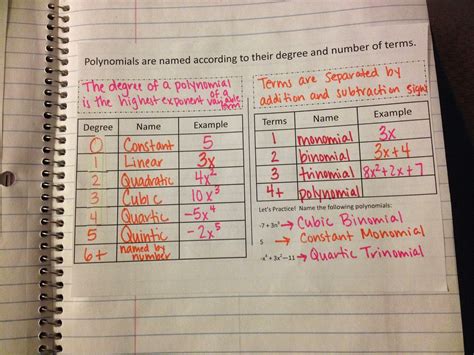 Polynomials are named according to their degree and number of terms.
The degree of a polynomial
is the highest exponent of a variable
Degree Name Example
0 Constant 5
1 Linear 3x
2 Quadratic 4x²
3 Cubic 10x³
4 Quartic -5x⁴
5 Quintic -2x⁵
6+ named by number
Terms are separated by
addition and subtraction signs
Terms Name Example
1 monomial 3x
2 binomial 3x+4
3 trinomial 8x²+2x+7
4+ polynomial
Let's Practice! Name the following polynomials:
-7 + 3n³ → Cubic Binomial
5 → Constant Monomial
-x⁴ + 3x²—11 → Quartic Trinomial